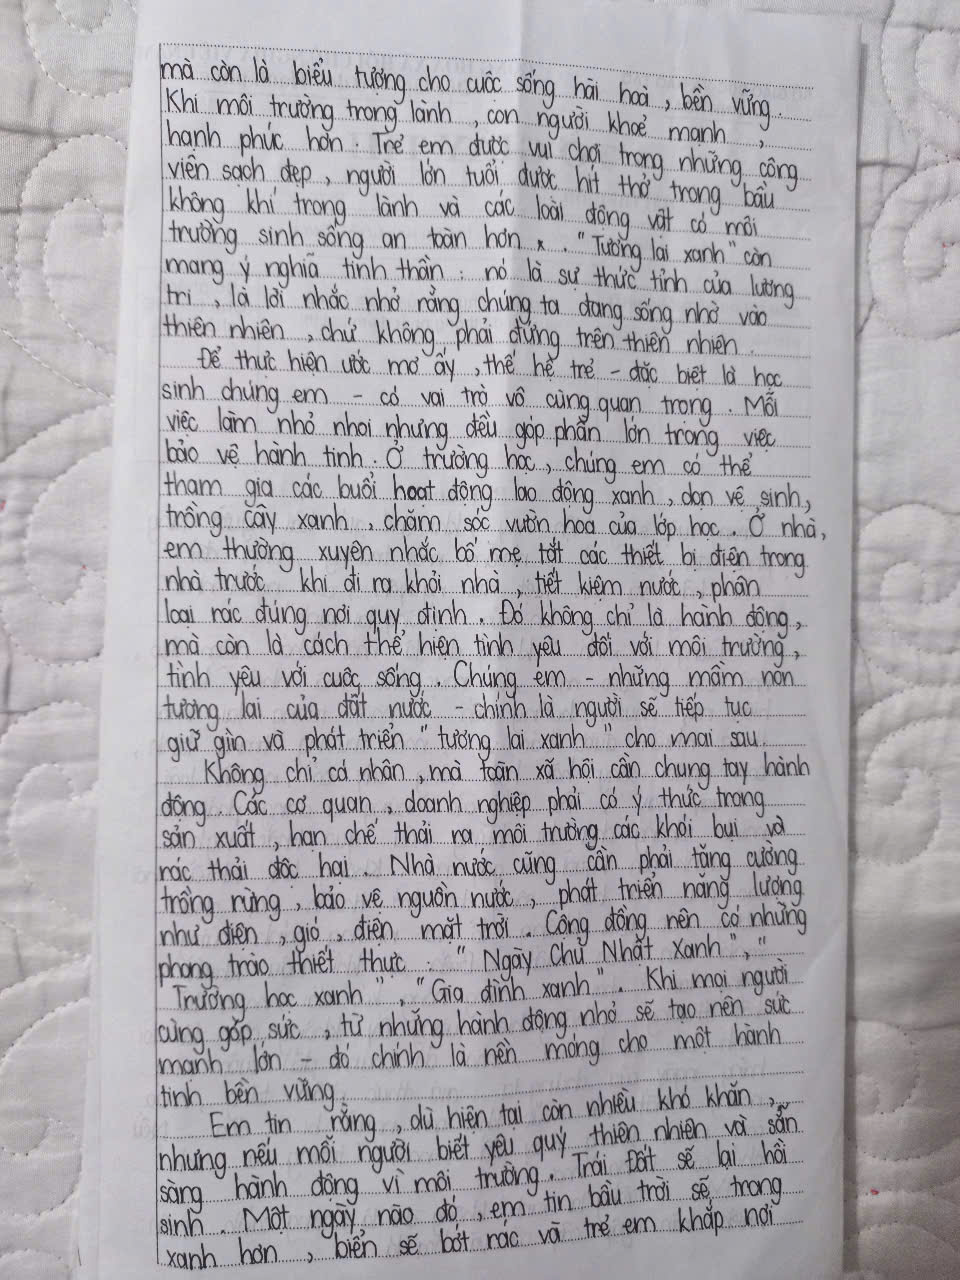 mà còn là biểu tượng cho cuộc sống hài hoà, bền vững.
Khi môi trường trong lành, con người khoẻ mạnh,
hạnh phúc hơn. Trẻ em được vui chơi trong những công
viên sạch đẹp, người lớn tuổi được hít thở trong bầu
không khí trong lành và các loài động vật có môi
trường sinh sống an toàn hơn. "Tương lai xanh" còn
mang ý nghĩa tinh thần: nó là sự thức tỉnh của lương
tri, là lời nhắc nhở rằng chúng ta đang sống nhờ vào
thiên nhiên, chứ không phải đứng trên thiên nhiên.
Để thực hiện ước mơ ấy, thế hệ trẻ - đặc biệt là học
sinh chúng em - có vai trò vô cùng quan trọng. Mỗi
việc làm nhỏ nhoi nhưng đều góp phần lớn trong việc
bảo vệ hành tinh. Ở trường học, chúng em có thể
tham gia các buổi hoạt động lao động xanh, dọn vệ sinh,
trồng cây xanh, chăm sóc vườn hoa của lớp học. Ở nhà,
em thường xuyên nhắc bố mẹ tắt các thiết bị điện trong
nhà trước khi đi ra khỏi nhà, tiết kiệm nước, phân
loại rác đúng nơi quy định. Đó không chỉ là hành động,
mà còn là cách thể hiện tình yêu đối với môi trường,
tình yêu với cuộc sống. Chúng em - những mầm non
tương lai của đất nước - chính là người sẽ tiếp tục
giữ gìn và phát triển "tương lai xanh" cho mai sau.
Không chỉ cá nhân, mà toàn xã hội cần chung tay hành
động. Các cơ quan, doanh nghiệp phải có ý thức trong
sản xuất, hạn chế thải ra môi trường các khói bụi và
rác thải độc hại. Nhà nước cũng cần phải tăng cường
trồng rừng, bảo vệ nguồn nước, phát triển năng lượng
như điện, gió, điện mặt trời. Cộng đồng nên có những
phong trào thiết thực: "Ngày Chủ Nhật Xanh", "
Trường học xanh", "Gia đình xanh". Khi mọi người
cùng góp sức, từ những hành động nhỏ sẽ tạo nên sức
mạnh lớn - đó chính là nền móng cho một hành
tinh bền vững.
Em tin rằng, dù hiện tại còn nhiều khó khăn,
nhưng nếu mỗi người biết yêu quý thiên nhiên và sẵn
sàng hành động vì môi trường. Trái Đất sẽ lại hồi
sinh. Một ngày nào đó, em tin bầu trời sẽ trong
xanh hơn, biển sẽ bớt rác và trẻ em khắp nơi